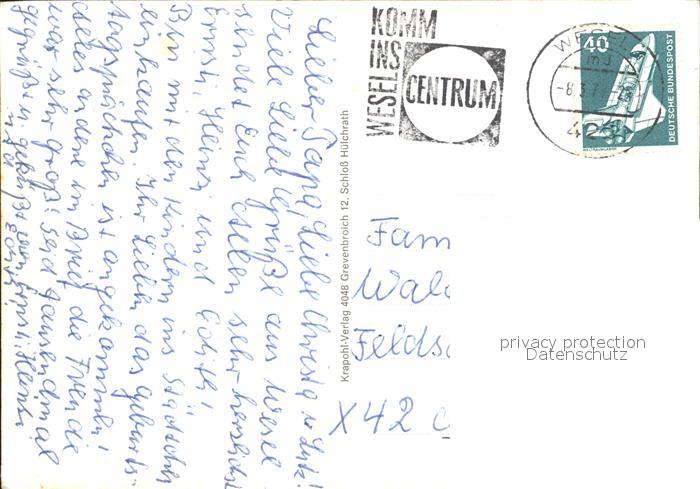 KOMM
INS
WESEL
CENTRUM
WESEL
40
DEUTSCHE BUNDESPOST
WELTRAUMLABOR
Lieber Papa, Liebe Christa u.
Viele Liebe Grüße aus Wesel
sendet Euch allen sehr herzlichst
Ernst, Heinz und Edith!
Bin mit den Kindern ins Städtchen
einkaufen. Ihr Lieben das Geburts-
tagspäckchen ist angekommen!
alles andere im Brief die Freude
war sehr groß! Seid tausendmal
gegrüßt u. geküßt von
Krapohl-Verlag 4048 Grevenbroich 12. Schloß Hülchrath
Fam
Wal
Felds
X42
privacy protection
Datenschutz